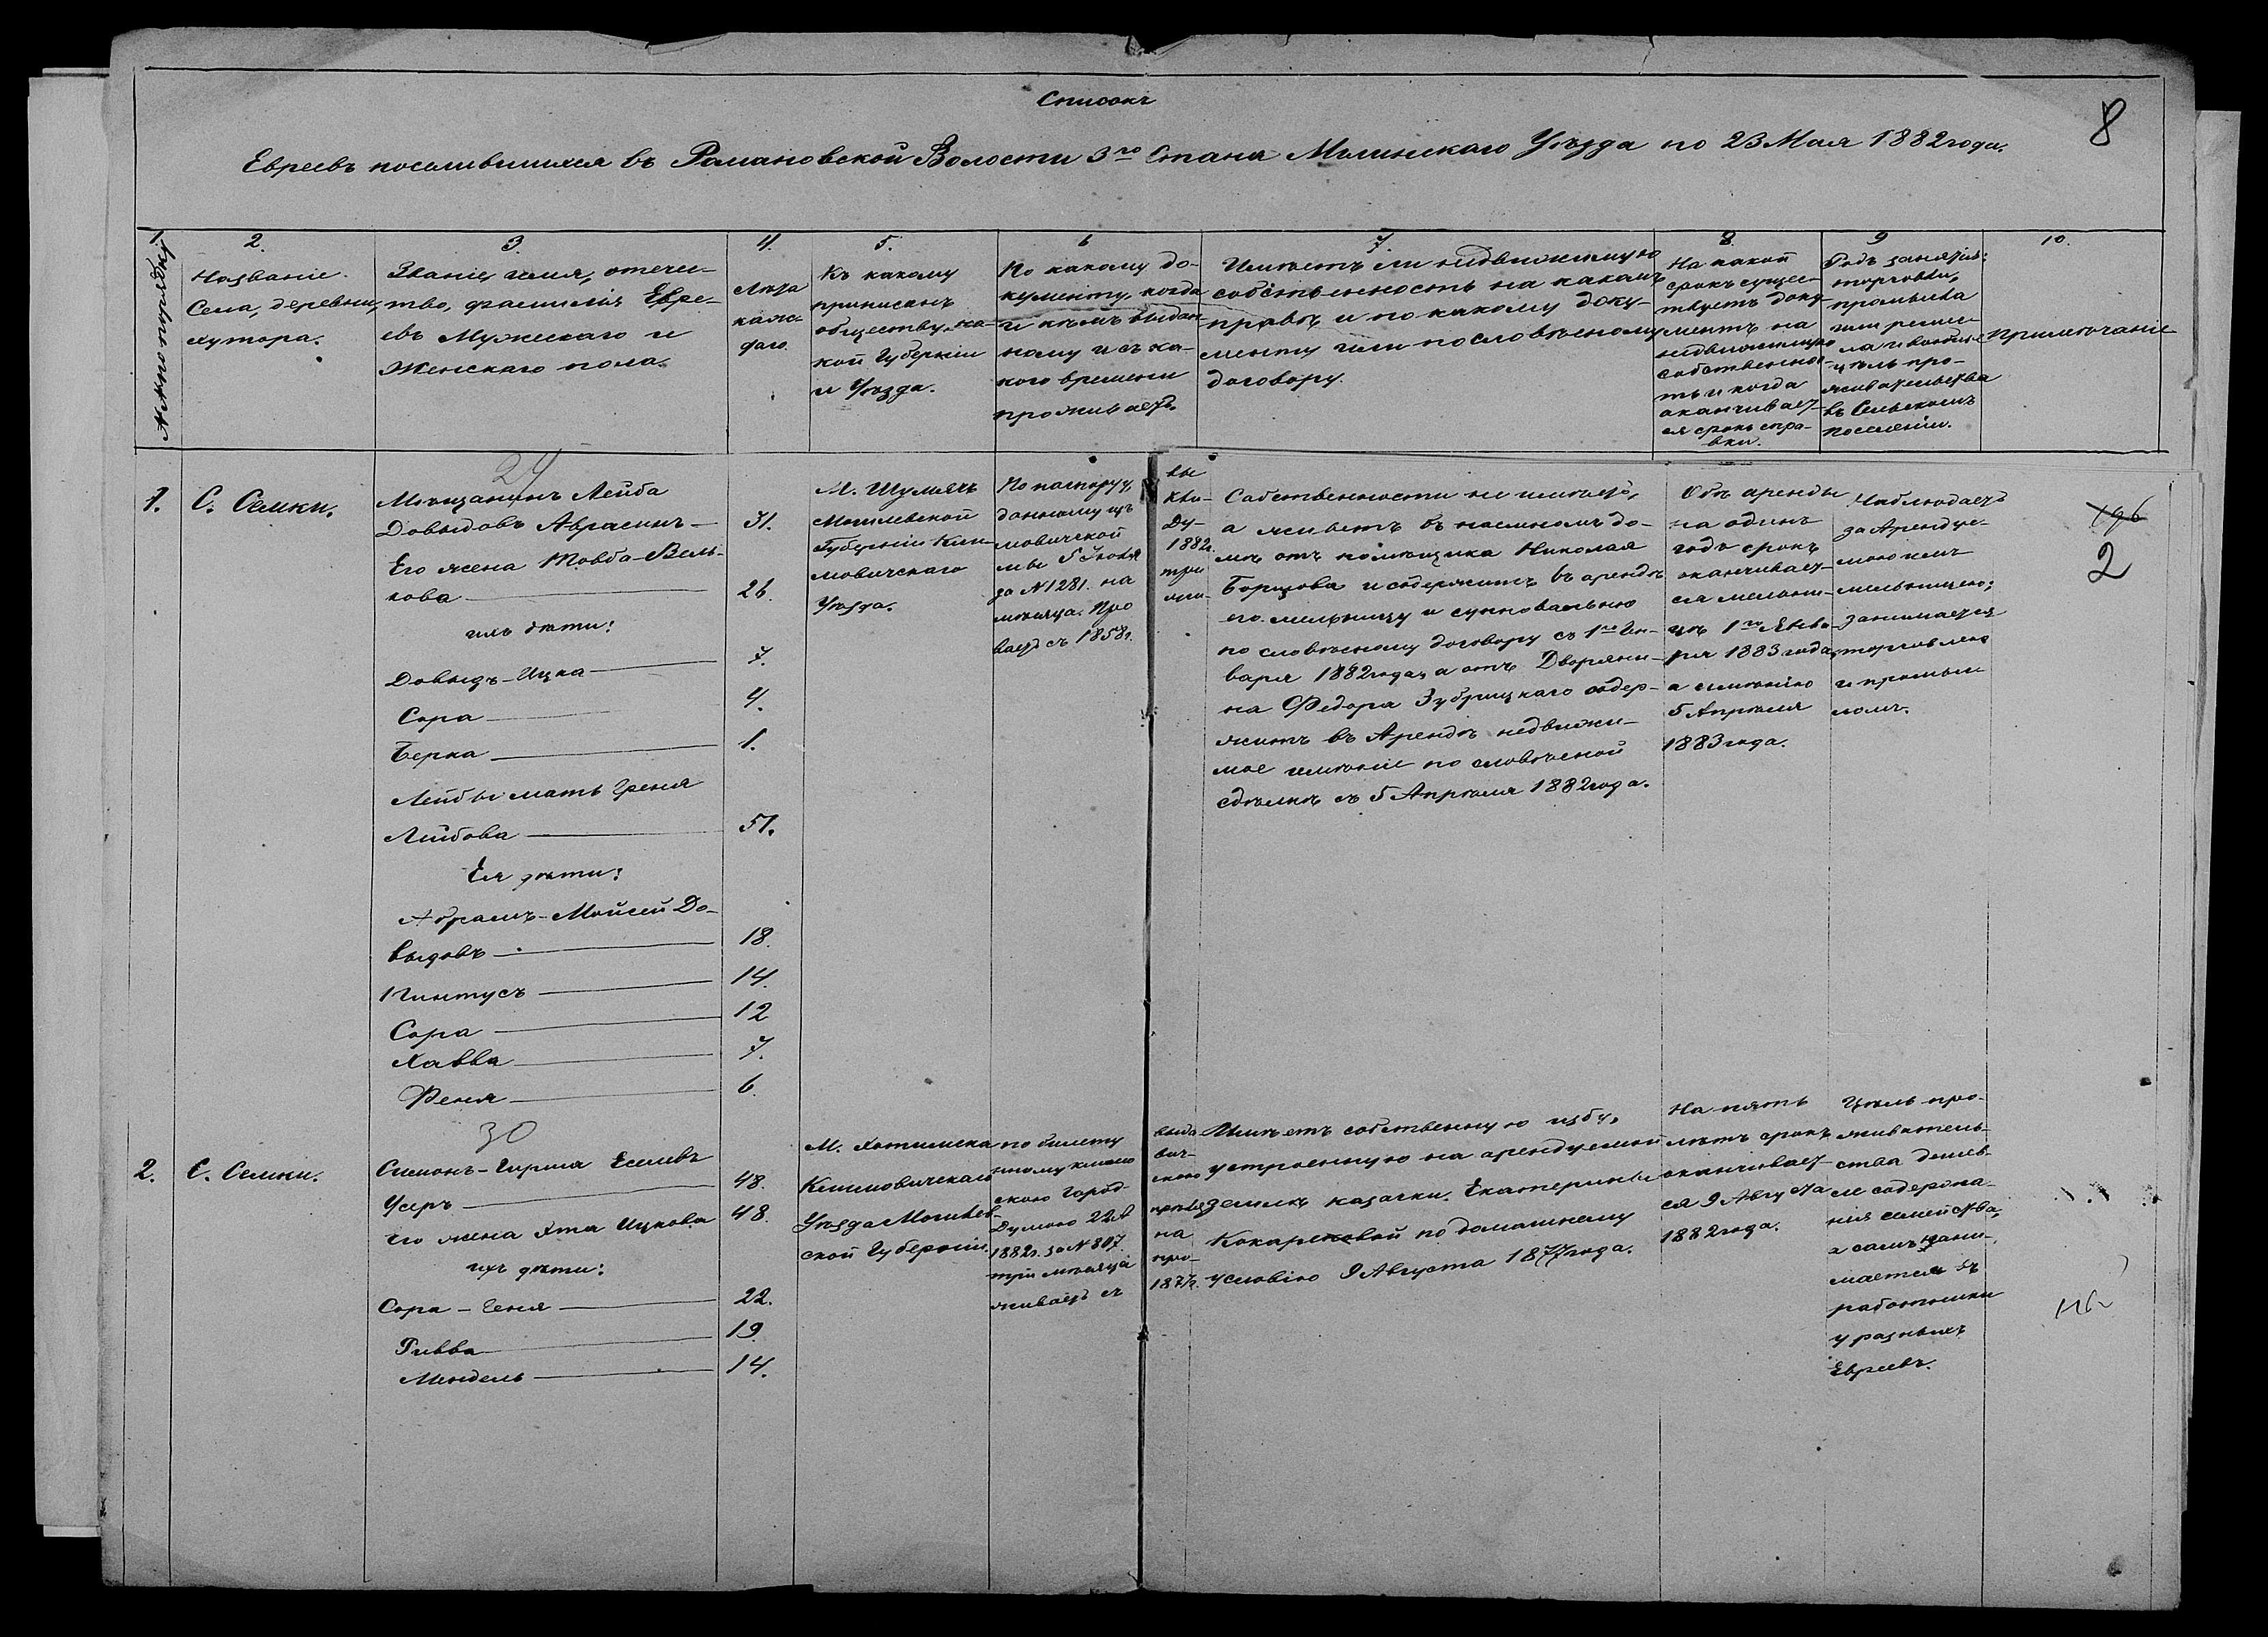 Списокъ
8
Евреевъ поселившихся въ Романовской Волости 3го Стана Мглинскаго Уѣзда по 23 Мая 1882 года.
1.
№№ по порядку
2.
Названіе
Села, деревни,
хутора.
3
Званіе имя, отечес-
тво, фамилія Евре-
евъ Мужескаго и
Женскаго пола.
4.
Лѣта
каж-
даго.
5.
Къ какому
приписанъ
обществу, ка-
кой Губерніи
и Уѣзда.
6
По какому до-
кументу, когда
и кѣмъ выдан-
ному и съ ка-
кого времени
проживаетъ.
7.
Имѣетъ ли недвижимую
собственность на какомъ
правѣ и по какому доку-
менту или по словѣсному
договору.
8.
На какой
срокъ сущес-
твуетъ доку-
ментъ на
недвижимую
собственнос-
ть и когда
оканчивает-
ся срокъ спра-
вки.
9
Родъ занятія:
торговли,
промысла
или ремес-
ла и
цѣль про-
жительства
въ Сельскомъ
поселеніи.
10.
Примѣчаніе
1.
С. Семки.
24
Мѣщанинъ Лейба
Довыдовъ Аврасинъ — 31.
Его жена Товба-Вель-
кова — 26.
ихъ дѣти:
Довыдъ-Ицка — 7.
Сора — 4.
Берка — 1.
Лейбы мать Феня
Лейбова — 51.
Ея дѣти:
Абрамъ-Мойсей До-
выдовъ — 18.
Пинтусъ — 14.
Сора — 12
Хавва — 7.
Феня — 6.
М. Шумячъ
Могилевской
Губерніи Кли-
мовичскаго
Уѣзда.
По паспорту, вы
данному изъ Кли-
мовичской Ду-
мы 5 Іюня 1882г.
за № 1281. на три
мѣсяца. Про жи-
ваетъ съ 1858г.
Собственности не имѣетъ,
а живетъ въ наемномъ до-
мѣ отъ помѣщика Николая
Борщова и содержитъ въ арендѣ
его мельницу и сукновальню
по словѣсному договору съ 1го Ян-
варя 1882 года, а отъ Дворяни-
на Федора Зубрицкаго содер-
житъ въ Арендѣ недвижи-
мое имѣніе по словѣсной
сдѣлкѣ съ 5 Апрѣля 1882 года.
Объ аренды
на одинъ
годъ срокъ
оканчивает-
ся мельни-
цѣ 1го Янва-
ря 1883 года,
а имѣнію
5 Апрѣля
1883 года.
Наблюдаетъ
за Арендуе-
мою имъ
мельницею;
занимается
торговлею
и промыс-
ломъ.
196
2
2.
С. Семки.
30
Симонъ-Гирша Еселевъ
Усеръ — 48.
Его жена Хта Ицкова 48.
ихъ дѣти:
Сора-Геня — 22.
Ривва — 19.
Мендель — 14.
М. Хотимска
Климовичскаго
Уѣзда Могилев-
ской Губерніи.
по билету выда
нному климо вич-
скою Город- скою
Думою 22
1882г. за № 807 на
три мѣсяца про-
живаетъ съ 1877г.
Имѣетъ собственную избу,
устроенную на арендуемой
землѣ казачки Екатерины
Кокаревой по домашнему
условію 9 Августа 1877 года.
На пять
лѣтъ срокъ
оканчивает-
ся 9 Августа
1882 года.
Цѣль про-
живатель-
ства дешев-
ле содержа-
нія семейства,
а самъ зани-
мается въ
работники
у разныхъ
Евреевъ.